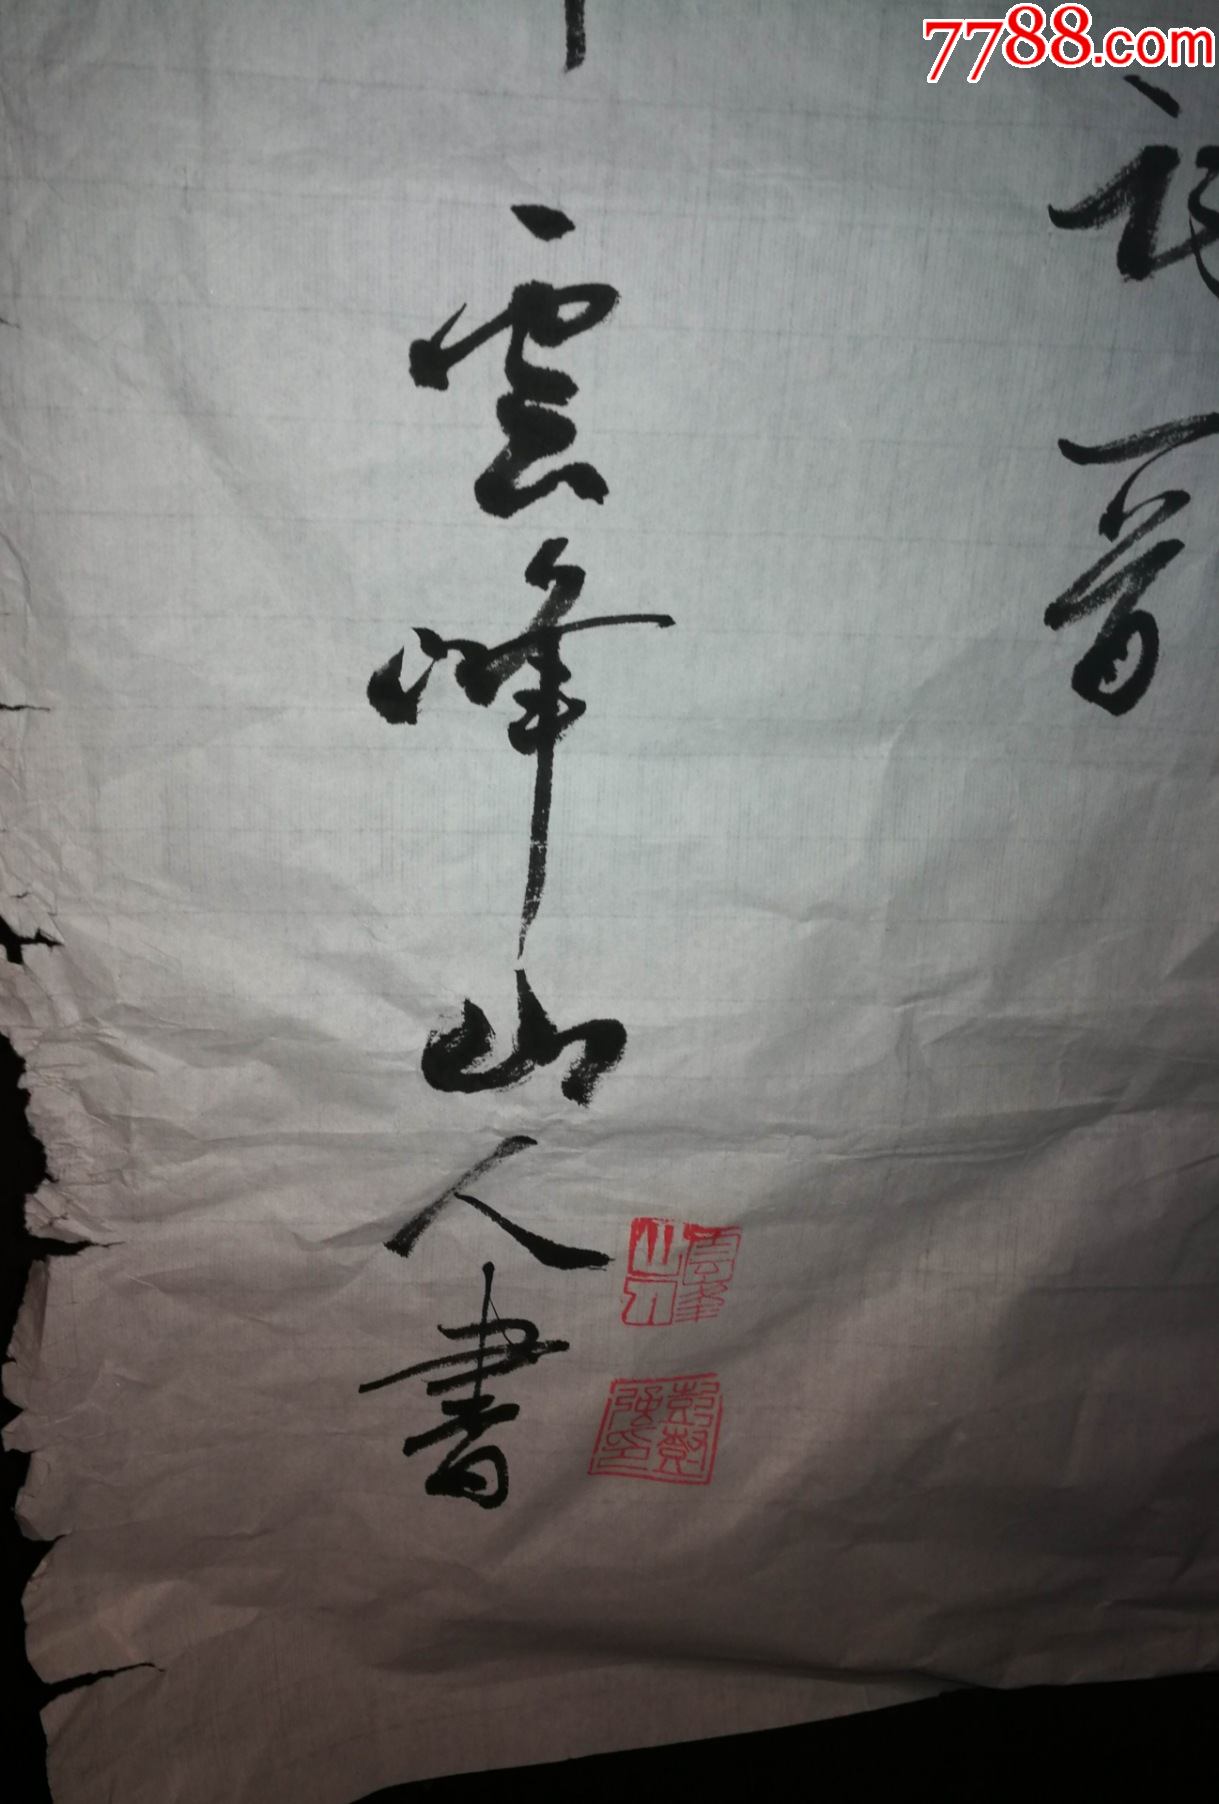 7788.com
一首
雲峰山人書
雲峯山人